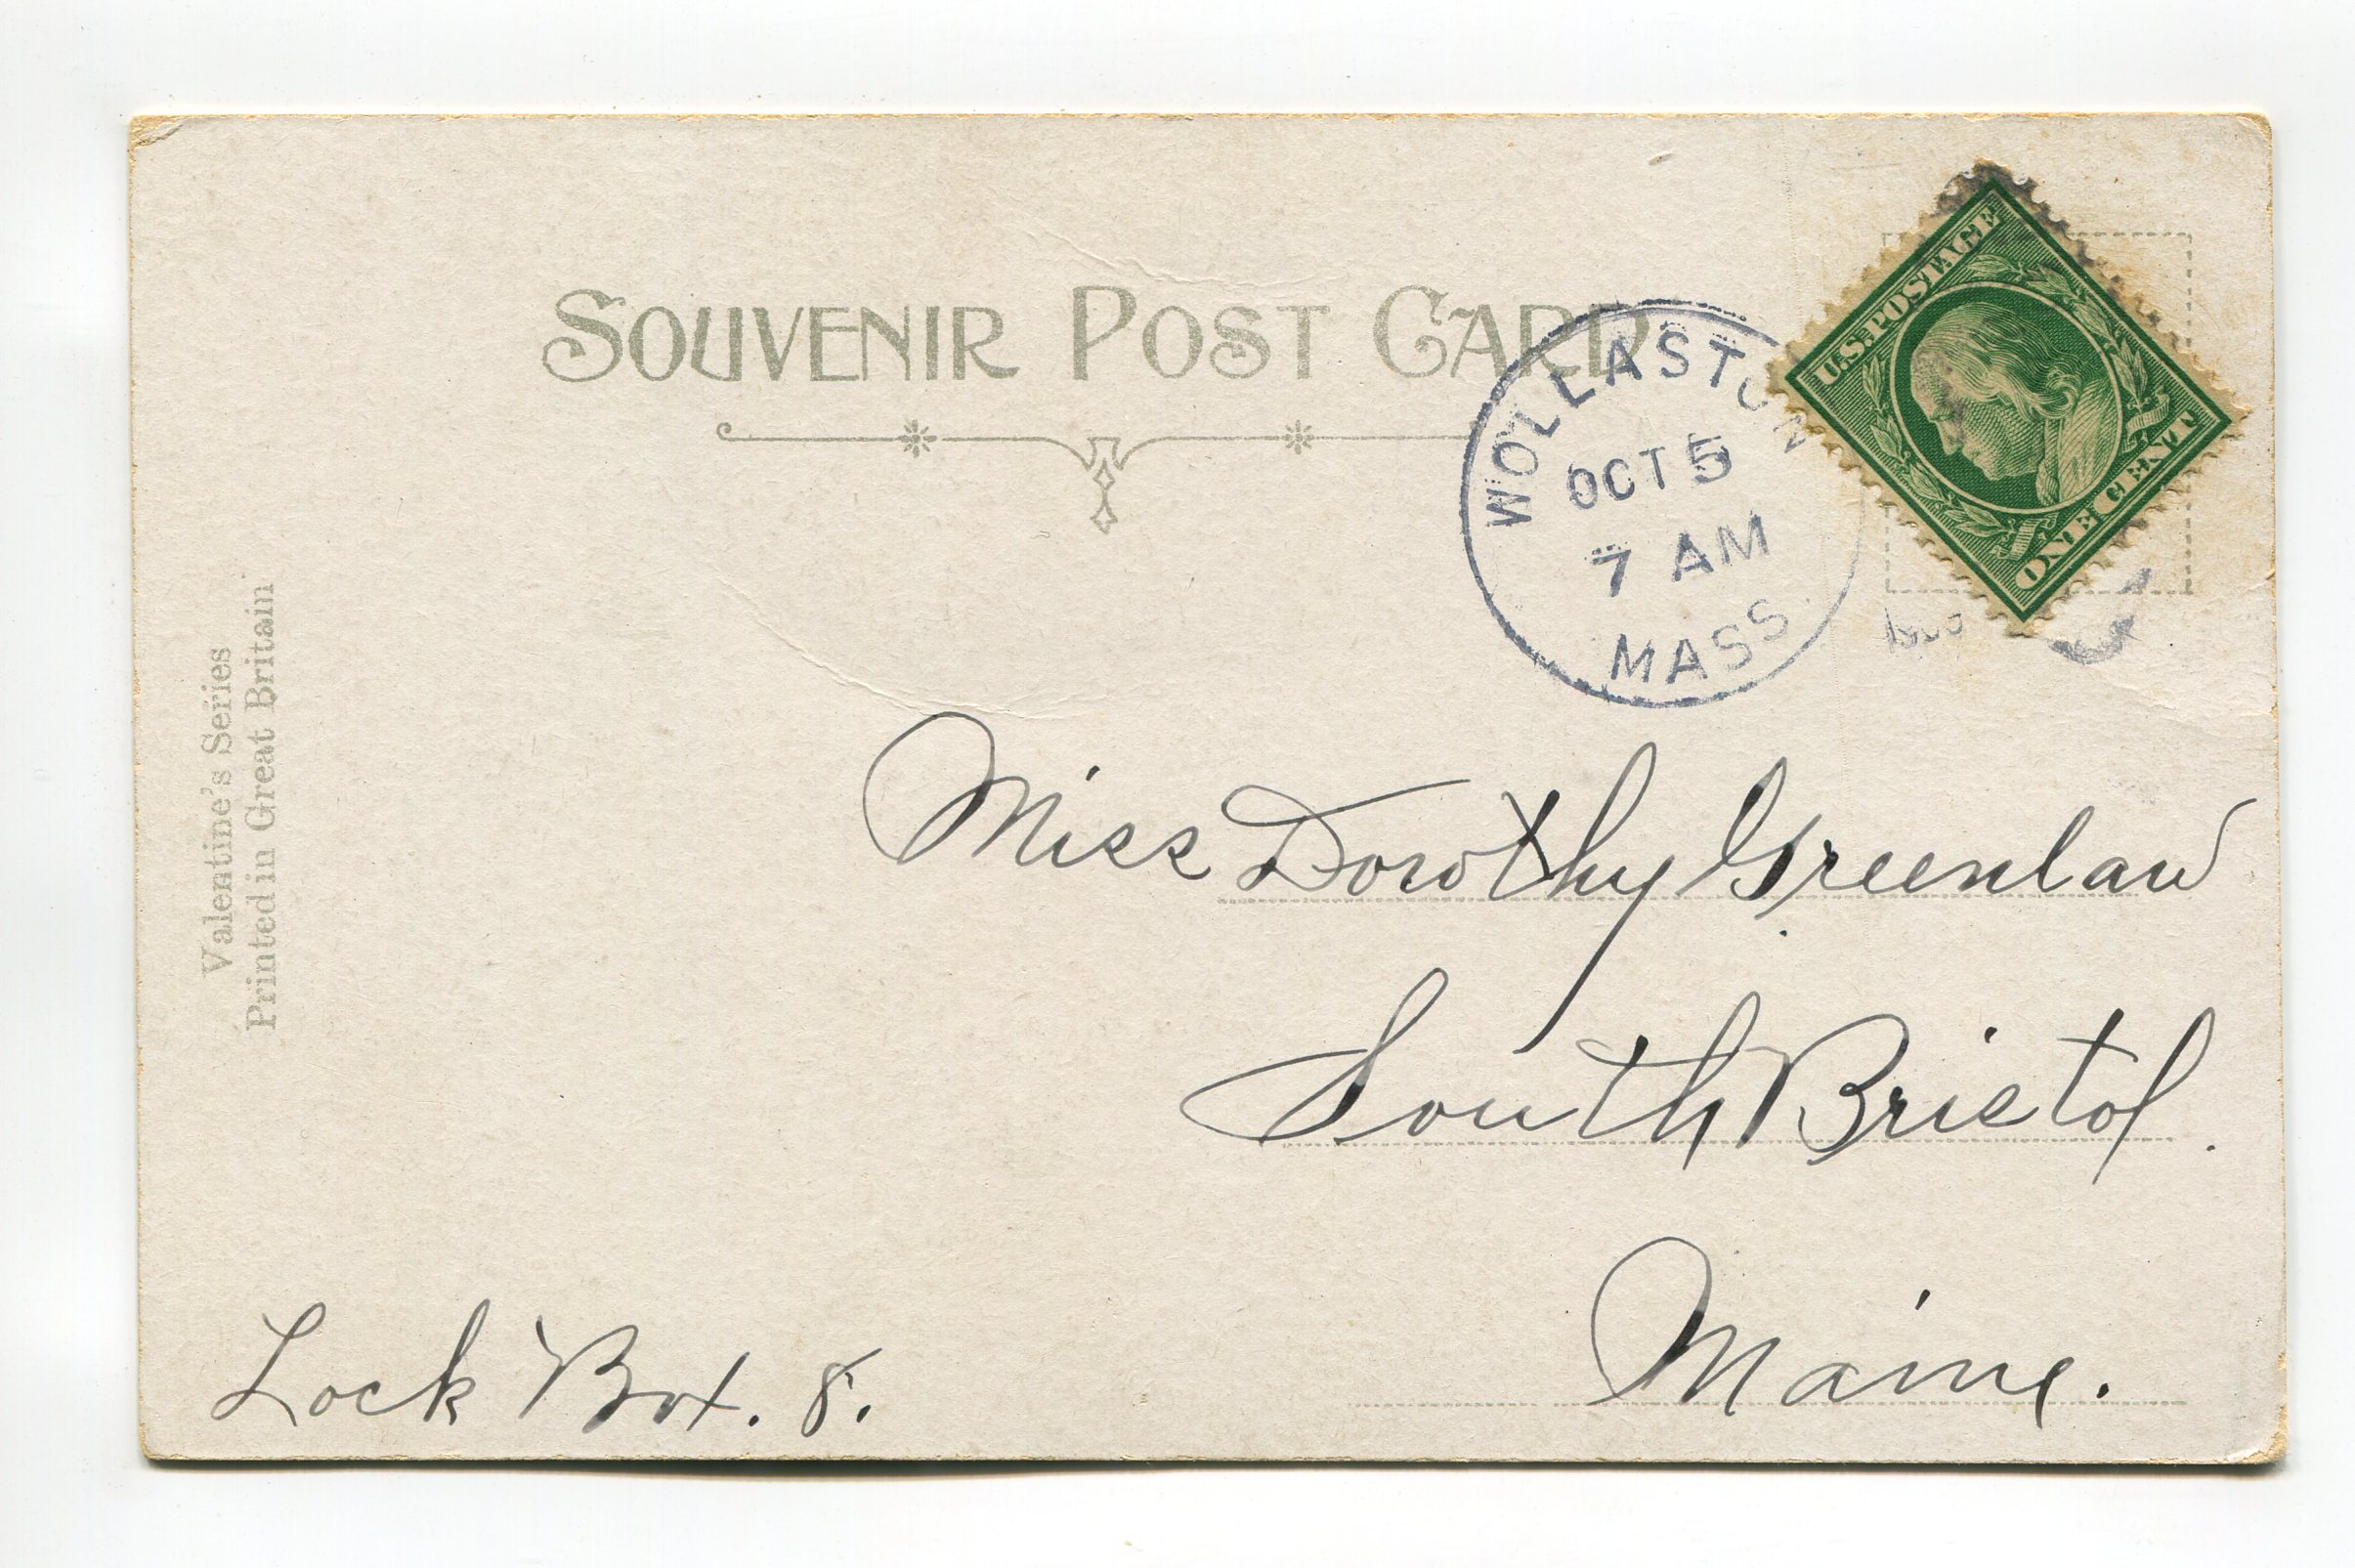 SOUVENIR POST CARD
WOLLASTON
OCT 5
7 AM
MASS.
U.S. POSTAGE
ONE CENT
Valentine's Series
Printed in Great Britain
Miss Dorothy Greenlaw
South Bristol.
Maine.
Lock Box. 8.